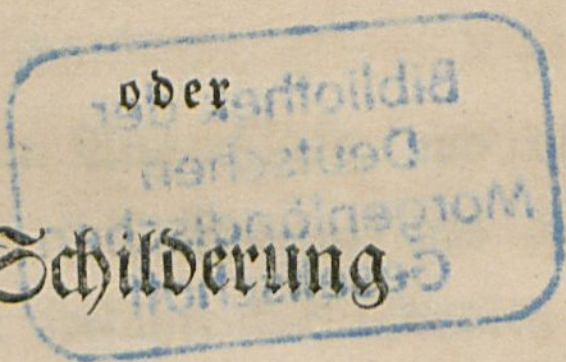 oder
Schilderung
Bibliothek der
Deutschen
Morgenländischen
Gesellschaft